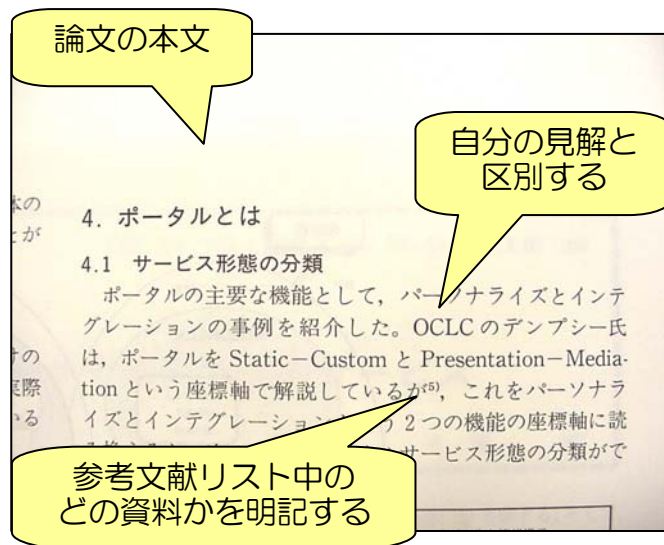 論文の本文
自分の見解と
区別する
本の
とが
4. ポータルとは
4.1 サービス形態の分類
ポータルの主要な機能として，パーソナライズとインテ
グレーションの事例を紹介した。OCLCのデンプシー氏
は，ポータルを Static－Custom と Presentation－Media-
tion という座標軸で解説しているが⁵⁾，これをパーソナラ
イズとインテグレーション う2つの機能の座標軸に読
サービス形態の分類がで
けの
実際
いる
参考文献リスト中の
どの資料かを明記する